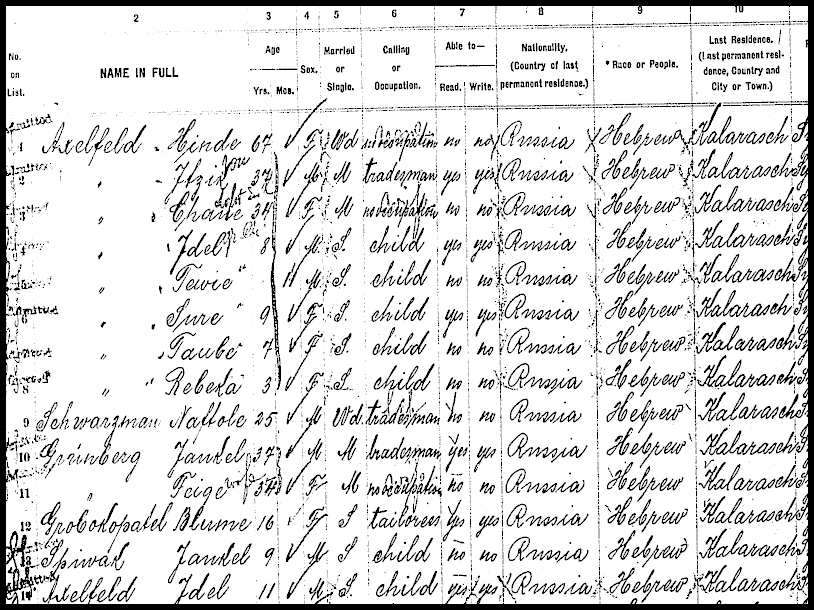 2 3 4 5 6 7 8 9 10
No. on List. NAME IN FULL Age Yrs. Mos. Sex. Married or Single. Calling or Occupation. Able to— Read. Write. Nationality. (Country of last permanent residence.) *Race or People. Last Residence. (Last permanent residence, Country and City or Town.)
1 Axelfeld Hinde 67 F Wd no occupation no no Russia Hebrew Kalarasch
2 " Itzik 37 M M tradesman yes yes Russia Hebrew Kalarasch
" Chane 34 F M no occupation no no Russia Hebrew Kalarasch
" Idel 8 M S. child yes yes Russia Hebrew Kalarasch
" Tewie 11 M S. child no no Russia Hebrew Kalarasch
6 " Sure 9 F S. child yes yes Russia Hebrew Kalarasch
" Taube 7 F S. child no no Russia Hebrew Kalarasch
8 " Rebeka 3 F S child no no Russia Hebrew Kalarasch
9 Schwarzman Naftole 25 M Wd tradesman no no Russia Hebrew Kalarasch
10 Grünberg Jankel 37 M M tradesman yes yes Russia Hebrew Kalarasch
11 " Feige 34 F M no occupation no no Russia Hebrew Kalarasch
12 Grobokopatel Blume 16 F S tailoress yes yes Russia Hebrew Kalarasch
13 Spiwak Jankel 9 M S child no no Russia Hebrew Kalarasch
14 Axelfeld Idel 11 M S child yes yes Russia Hebrew Kalarasch